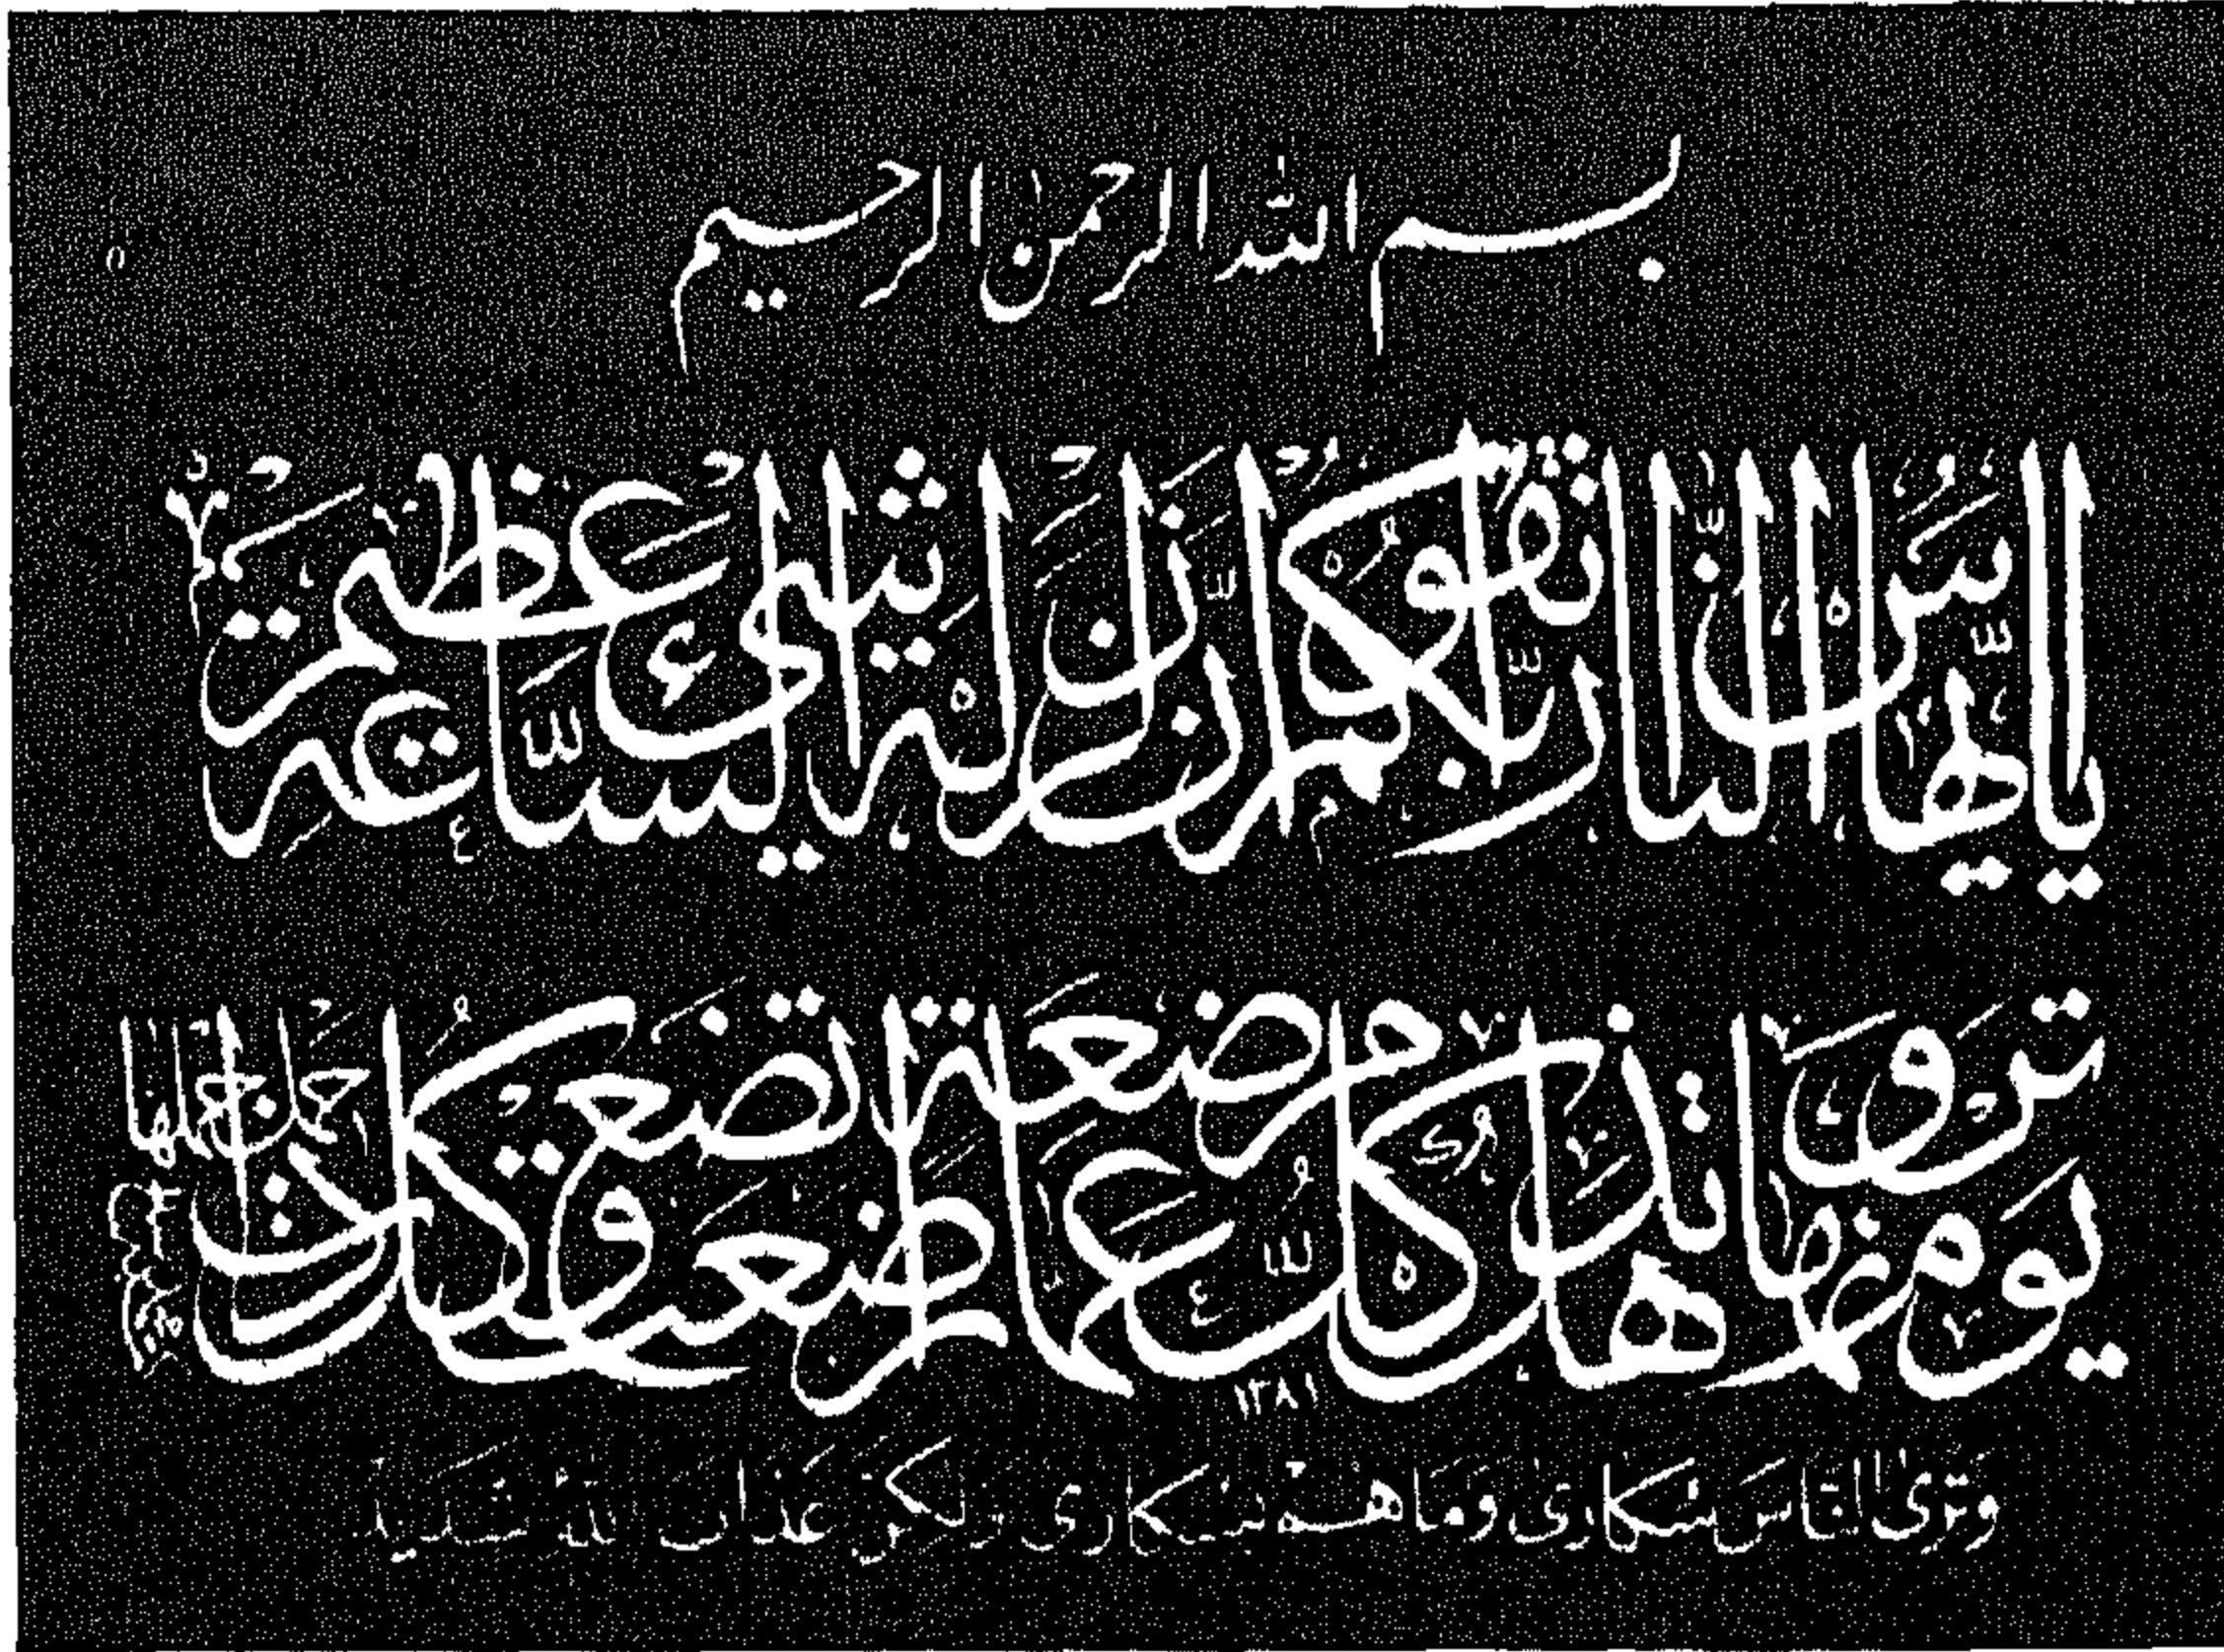 بسم الله الرحمن الرحيم
يا ايها الناس اتقوا ربكم ان زلزلة الساعة شيء عظيم
يوم ترونها تذهل كل مرضعة عما ارضعت وتضع كل ذات حمل حملها
١٣٨١
وَتَرَى النَّاسَ سُكَارَى وَمَا هُمْ بِسُكَارَى وَلَكِنَّ عَذَابَ اللهِ شَدِيد